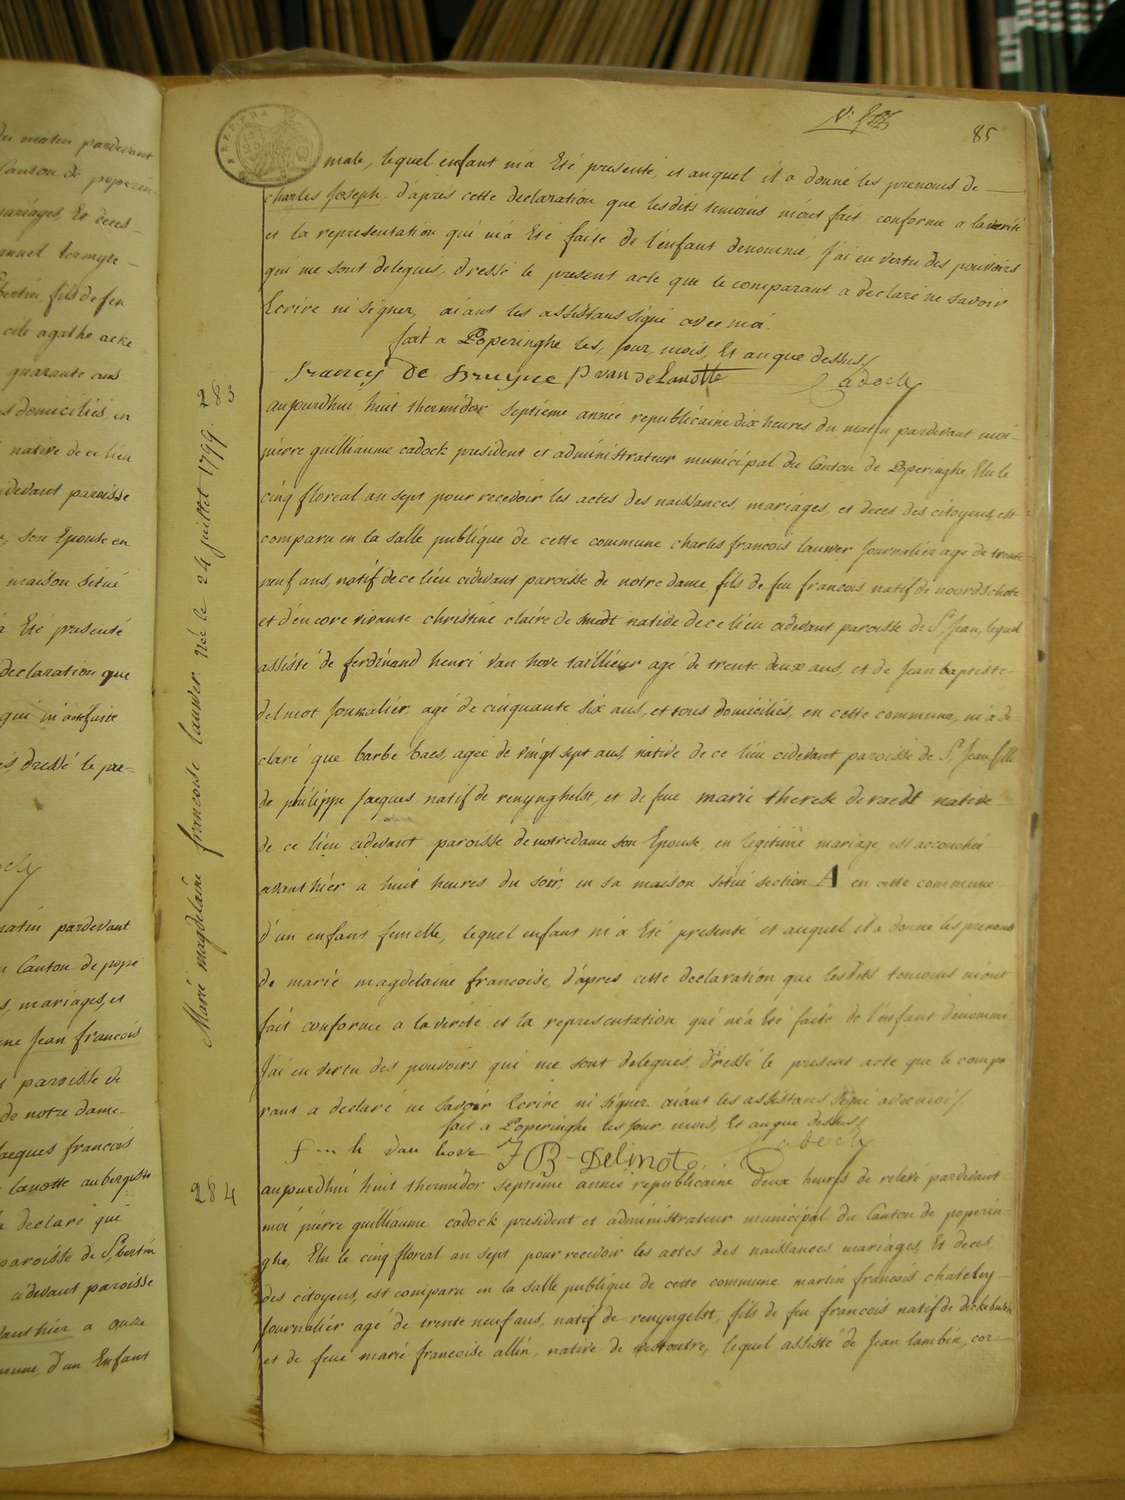 85
male, lequel enfant m'a Eté presenté, et auquel il a donné les prenoms de
charles Joseph, d'après cette declaration que lesdits temoins m'ont fait conforme a la verité
et la representation qui m'a Eté faite de l'enfant denommé, J'ai en vertu des pouvoirs
qui me sont delegués, dressé le present acte que le comparant a declaré ne savoir
Ecrire ni signer, aiant les assistans signé avec moi.
fait a Poperinghe les, jour, mois, Et an que dessus/
francis De Bruyne P van de Lanotte Cadock
283
aujourdhui huit thermidor septieme année republicaine dix heures du matin pardevant moi
pierre guilliaume cadock president et administrateur municipal du Canton de Poperinghe, Elu le
cinq floreal an sept pour recevoir les actes des naissances, mariages, et deces des citoyens, est
comparu en la salle publique de cette commune charles francois lauwer Journalier agé de trente
neuf ans, natif de ce lieu cidevant paroisse de notre dame, fils de feu francois natif de noordschote
et d'encore vivante christine claire de smedt native de ce lieu cidevant paroisse de St Jean, lequel
assisté de ferdinand henri van hove taillieur agé de trente deux ans, et de Jean baptiste
delmot Journalier agé de cinquante six ans, et tous domiciliés, en cette commune, m'a de
claré que barbe baes, agée de vingt sept ans, native de ce lieu cidevant paroisse de St Jean fille
de philippe Jacques natif de renynghelst, et de feue marie therese de raedt native
de ce lieu cidevant paroisse de notre dame son Epouse, en legitime mariage, est accouchée
avant hier a huit heures du soir, en sa maison situé section A en cette commune
d'un enfant femelle, lequel enfant m'a Eté presenté et auquel il a donné les prenoms
de marie magdelaine francoise, d'après cette declaration que lesdits temoins m'ont
fait conforme a la verité et la representation qui m'a Eté faite de l'enfant denommé
J'ai en vertu des pouvoirs qui me sont delegués, dressé le present acte que le compa
rant a declaré ne savoir Ecrire ni signer aiant les assistans signé avec moi/
fait a Poperinghe les jour mois, Et an que dessus/
van hove J B Delmote Cadock
Marie magdelaine francoise lauwer née le 24 juillet 1799.
284
aujourdhui huit thermidor septieme année republicaine deux heures de relevé pardevant
moi pierre guilliaume cadock president et administrateur municipal du Canton de poperin
ghe, Elu le cinq floreal an sept pour recevoir les actes des naissances mariages, Et deces
des citoyens, est comparu en la salle publique de cette commune martin francois chateley
Journalier agé de trente neuf ans, natif de renyngelst, fils de feu francois natif de dickebusch
et de feue marie francoise allin, native de westoutre, lequel assisté de Jean lambin, cor
du matin pardevant
Canton de poperin
mariages, Et deces
fils de feu
agathe
quarante ans
domiciliés, en
native de ce lieu
cidevant paroisse
son Epouse en
maison situé
Eté presenté
declaration que
dressé le pre
matin pardevant
Canton de pope
mariages, et
Jean francois
paroisse de
de notre dame
Jacques francois
lanotte aubergiste
declaré que
paroisse de St bertin
cidevant paroisse
avant hier a onze
d'un Enfant